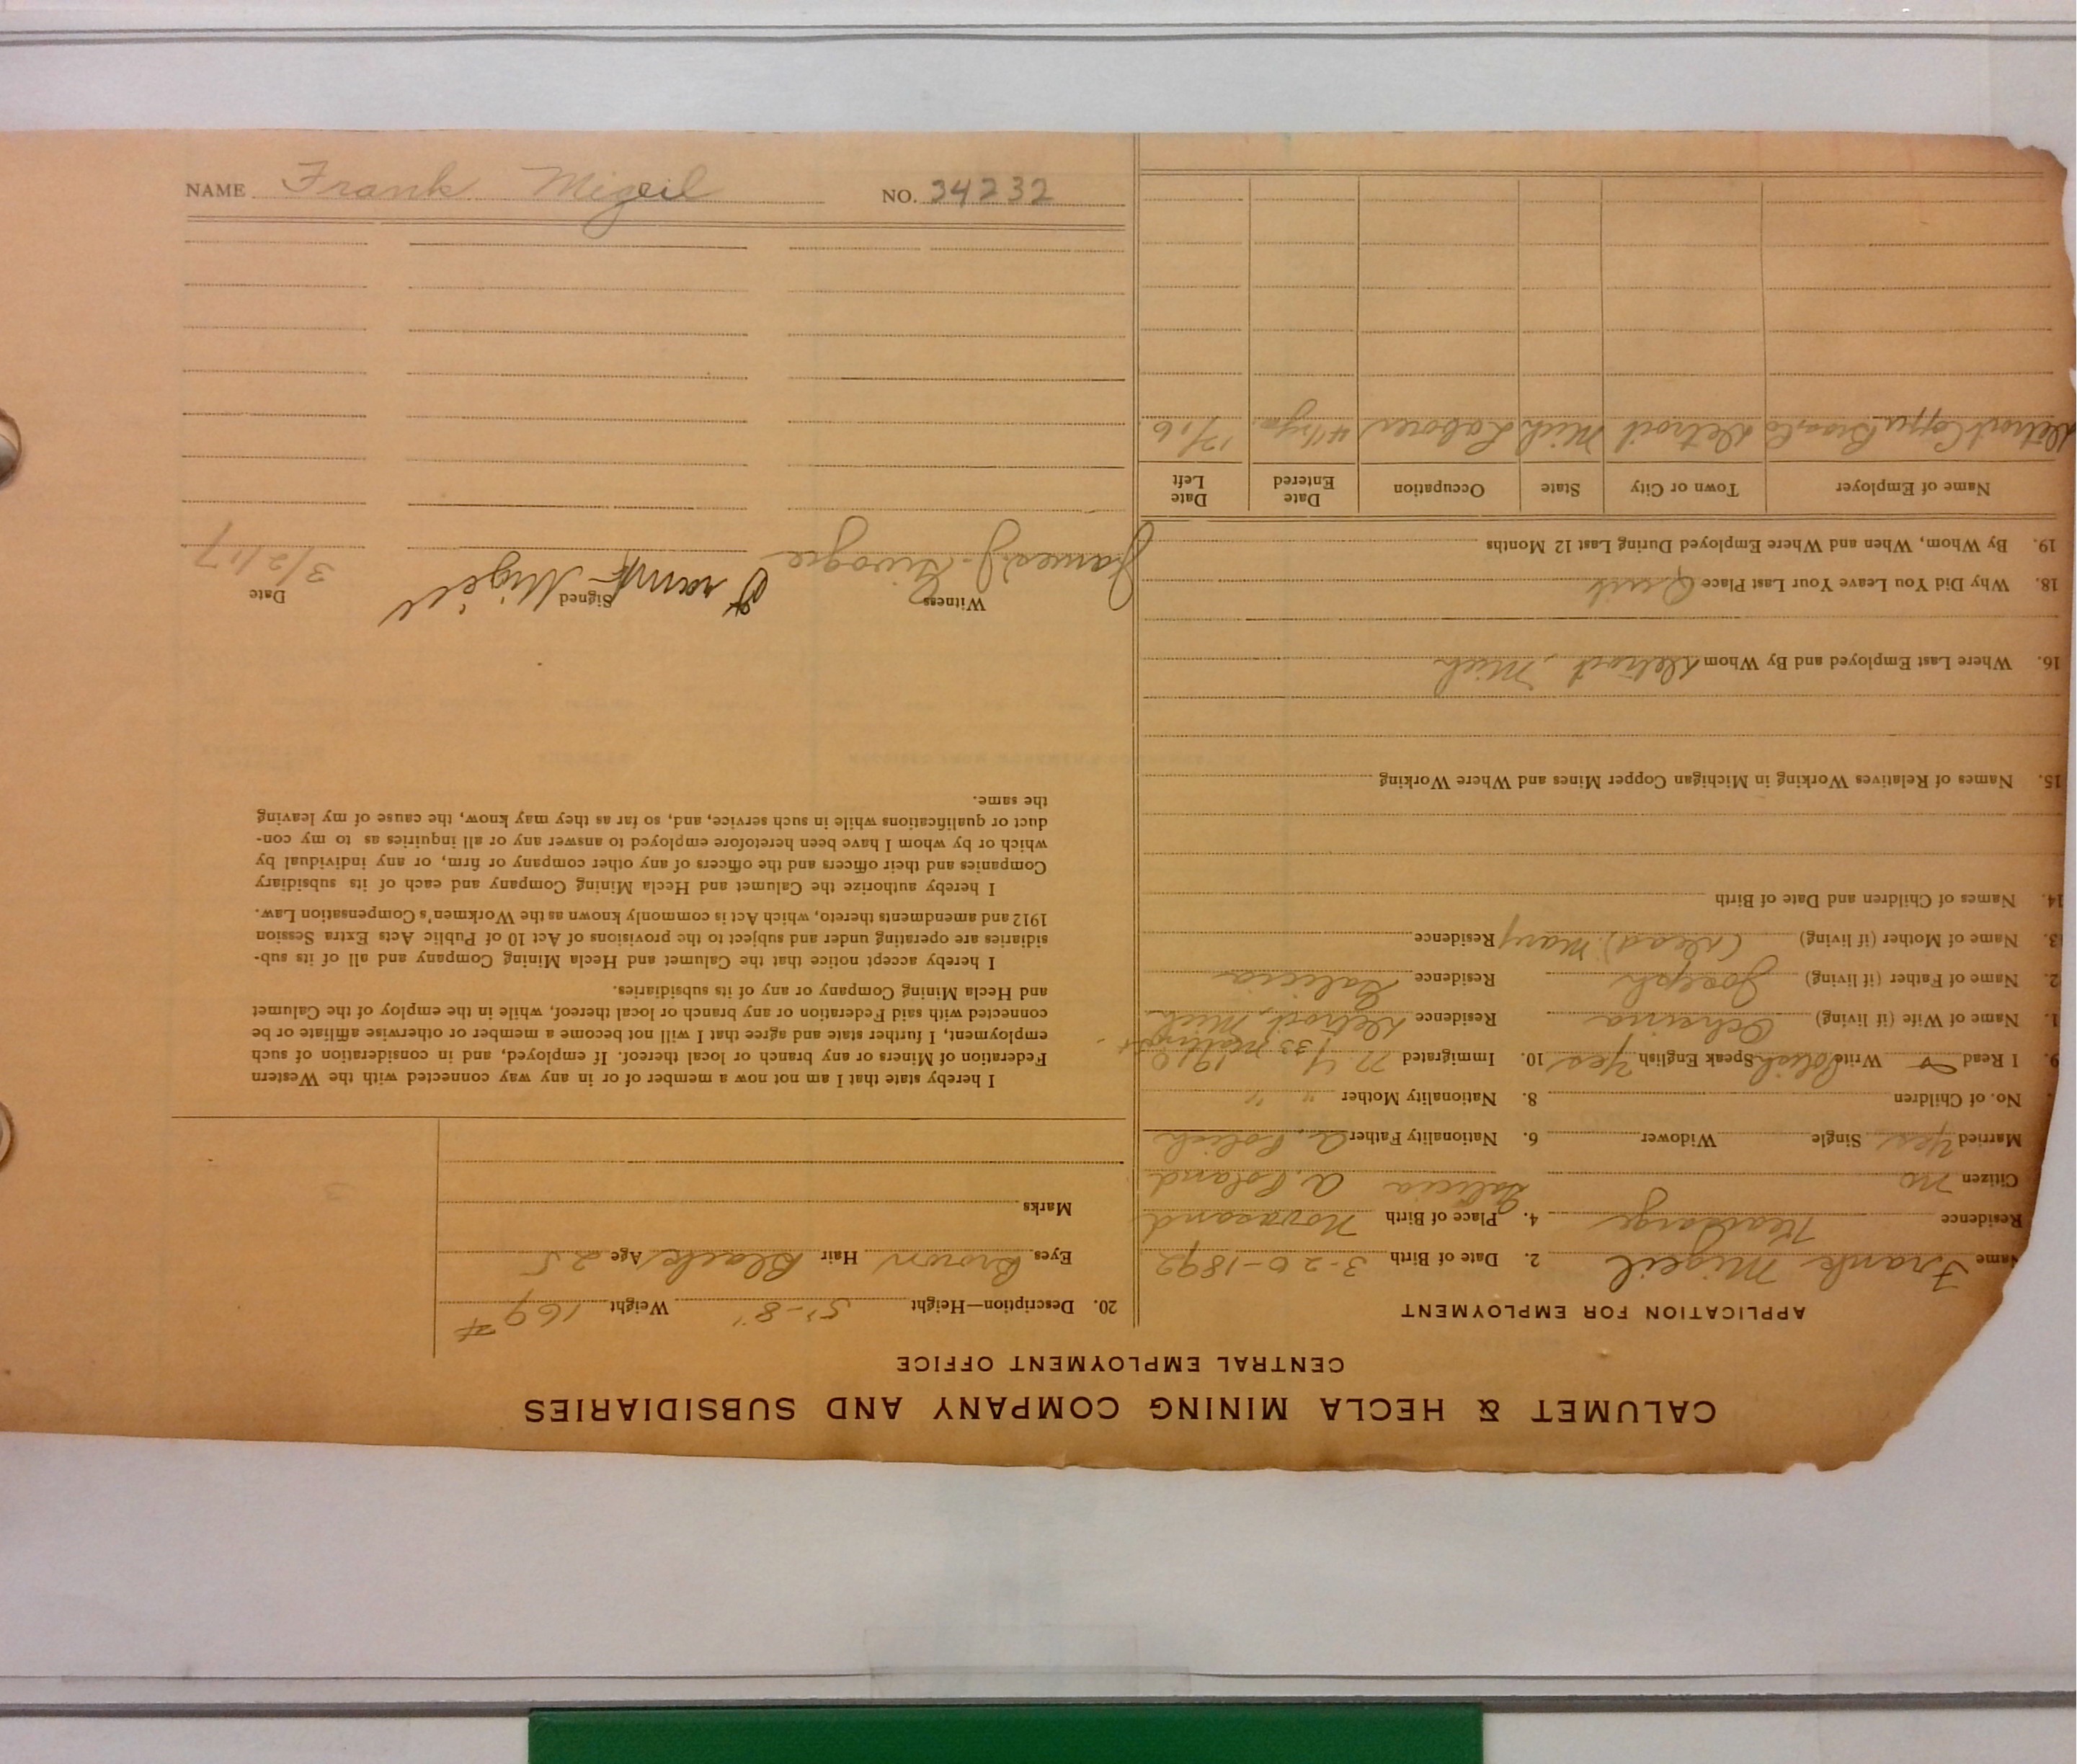 NAME Frank Migeil NO. 34232
CALUMET & HECLA MINING COMPANY AND SUBSIDIARIES
CENTRAL EMPLOYMENT OFFICE
APPLICATION FOR EMPLOYMENT
Name Frank Migeil 2. Date of Birth 3-20-1892
Residence 4. Place of Birth
Galicia A. Poland
Citizen no
Married Yes Single Widower 6. Nationality Father A. Polish
No. of Children 8. Nationality Mother " "
9. I Read Write Polish Speak English Yes 10. Immigrated N Y 1910
1. Name of Wife (if living) Residence Detroit, Mich
2. Name of Father (if living) Joseph Residence Galicia
3. Name of Mother (if living) (Dead) Mary Residence
14. Names of Children and Date of Birth
15. Names of Relatives Working in Michigan Copper Mines and Where Working
16. Where Last Employed and By Whom Detroit, Mich
18. Why Did You Leave Your Last Place Quit
19. By Whom, When and Where Employed During Last 12 Months
Name of Employer Town or City State Occupation Date Entered Date Left
Detroit Copper Brass Co Detroit Mich Laborer 12/16
20. Description—Height 5'-8" Weight 169 #
Eyes Brown Hair Black Age 25
Marks
I hereby state that I am not now a member of or in any way connected with the Western
Federation of Miners or any branch or local thereof. If employed, and in consideration of such
employment, I further state and agree that I will not become a member or otherwise affiliate or be
connected with said Federation or any branch or local thereof, while in the employ of the Calumet
and Hecla Mining Company or any of its subsidiaries.
I hereby accept notice that the Calumet and Hecla Mining Company and all of its sub-
sidiaries are operating under and subject to the provisions of Act 10 of Public Acts Extra Session
1912 and amendments thereto, which Act is commonly known as the Workmen's Compensation Law.
I hereby authorize the Calumet and Hecla Mining Company and each of its subsidiary
Companies and their officers and the officers of any other company or firm, or any individual by
which or by whom I have been heretofore employed to answer any or all inquiries as to my con-
duct or qualifications while in such service, and, so far as they may know, the cause of my leaving
the same.
Witness Signed Date
James J. Frank Migeil 3/2/17